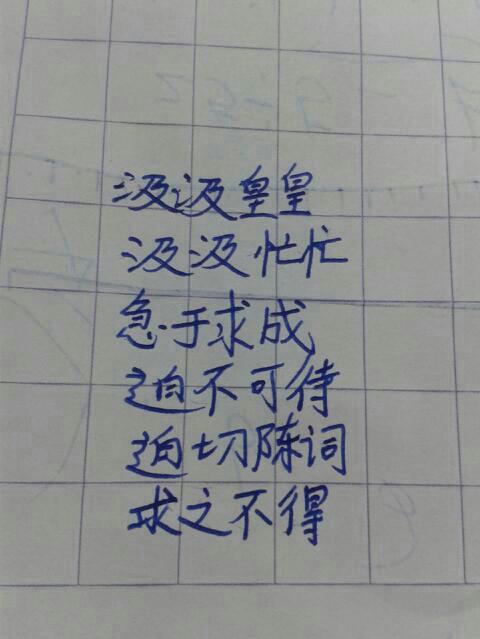 汲汲皇皇
汲汲忙忙
急于求成
迫不可待
迫切陈词
求之不得